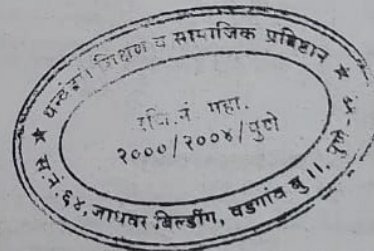 शिक्षण व सामाजिक प्रतिष्ठान
रजि.नं. महा.
२०००/२००४/पुणे
स.नं. ६४, जाधवर बिल्डींग, वडगांव बु॥. पुणे